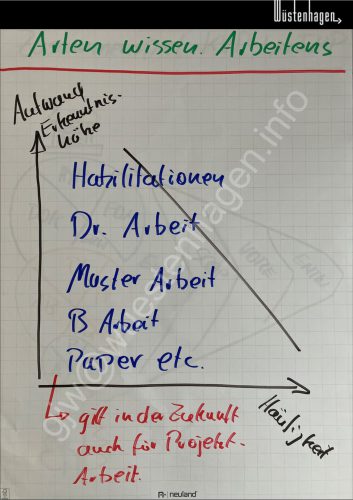 Wüstenhagen
Arten wissen. Arbeitens
Aufwand
Erkenntnis-
höhe
Habilitationen
Dr. Arbeit
Master Arbeit
B Arbeit
Paper etc.
Häufigkeit
gilt in der Zukunft
auch für Projekt-
Arbeit.
gw@wuestenhagen.info
neuland